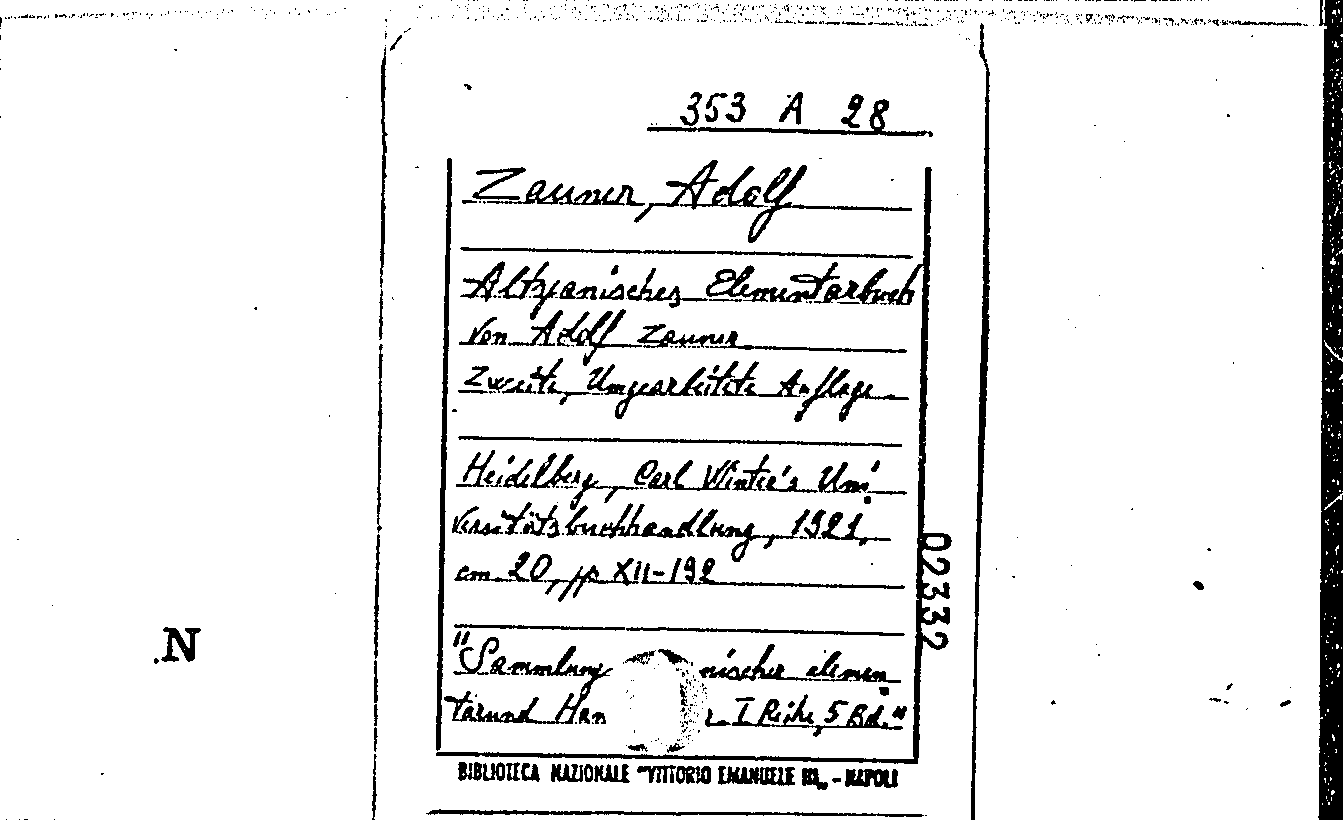 353 A 28
Zauner, Adolf
Altspanisches Elementarbuch
von Adolf Zauner
Zweite, Umgearbeitete Auflage
Heidelberg, Carl Winter's Uni
versitätsbuchhandlung, 1921,
cm. 20, pp XII-192
"Sammlung nischer elemen
tarund Han r I Reihe, 5 Bd."
02332
.N
BIBLIOTECA NAZIONALE "VITTORIO EMANUELE III„ - NAPOLI